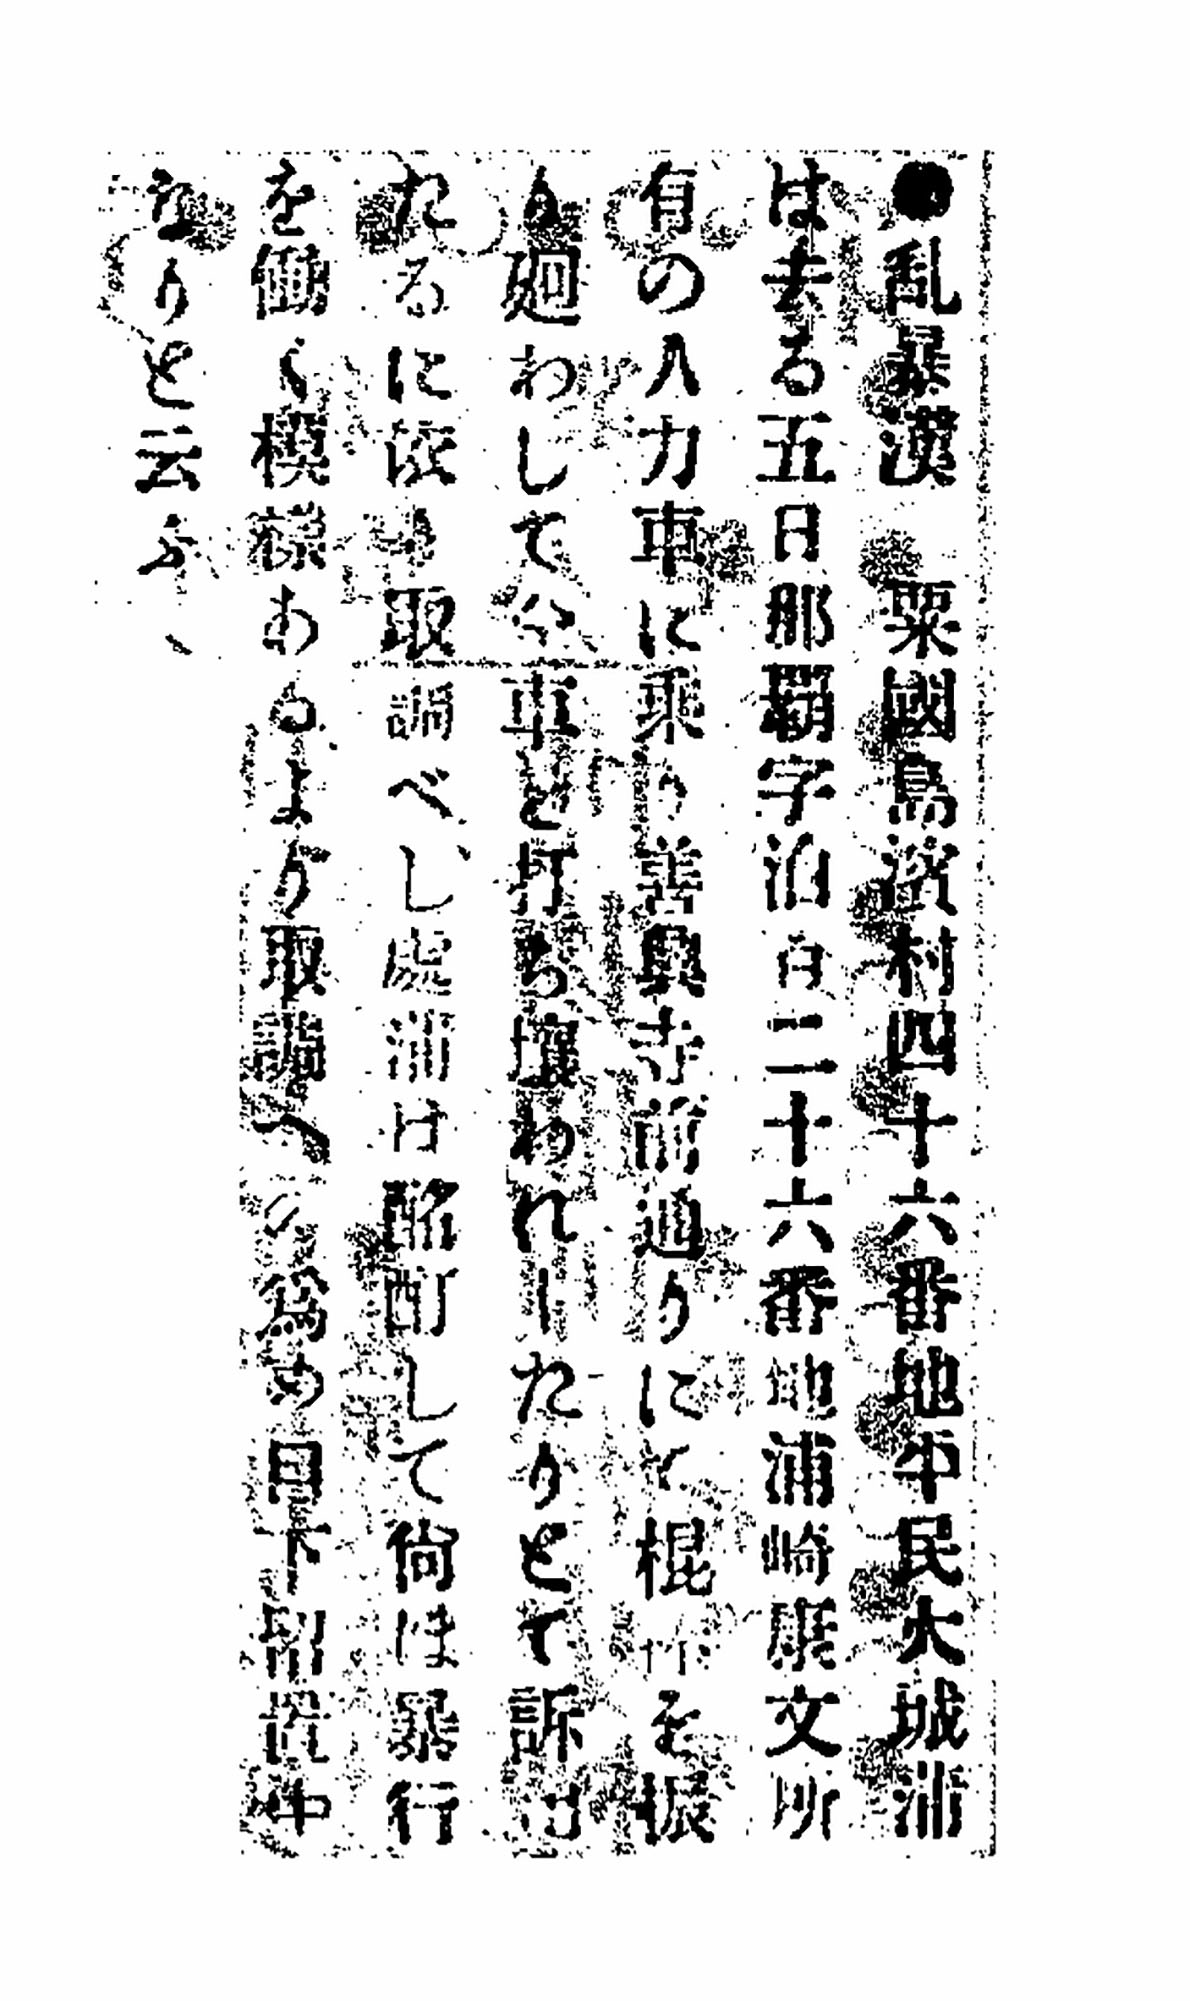 ●乱暴漢　粟國島濱村四十六番地平民大城浦
は去る五日那覇字泊百二十六番地浦崎康文所
有の人力車に乗り善興寺前通りにて棍棒を振
り廻わして全車を打ち壊われしたりとて訴出
たるに依り取調べし處浦は酩酊して尚ほ暴行
を働く模様あるより取調への為め目下留置中
なりと云ふ、